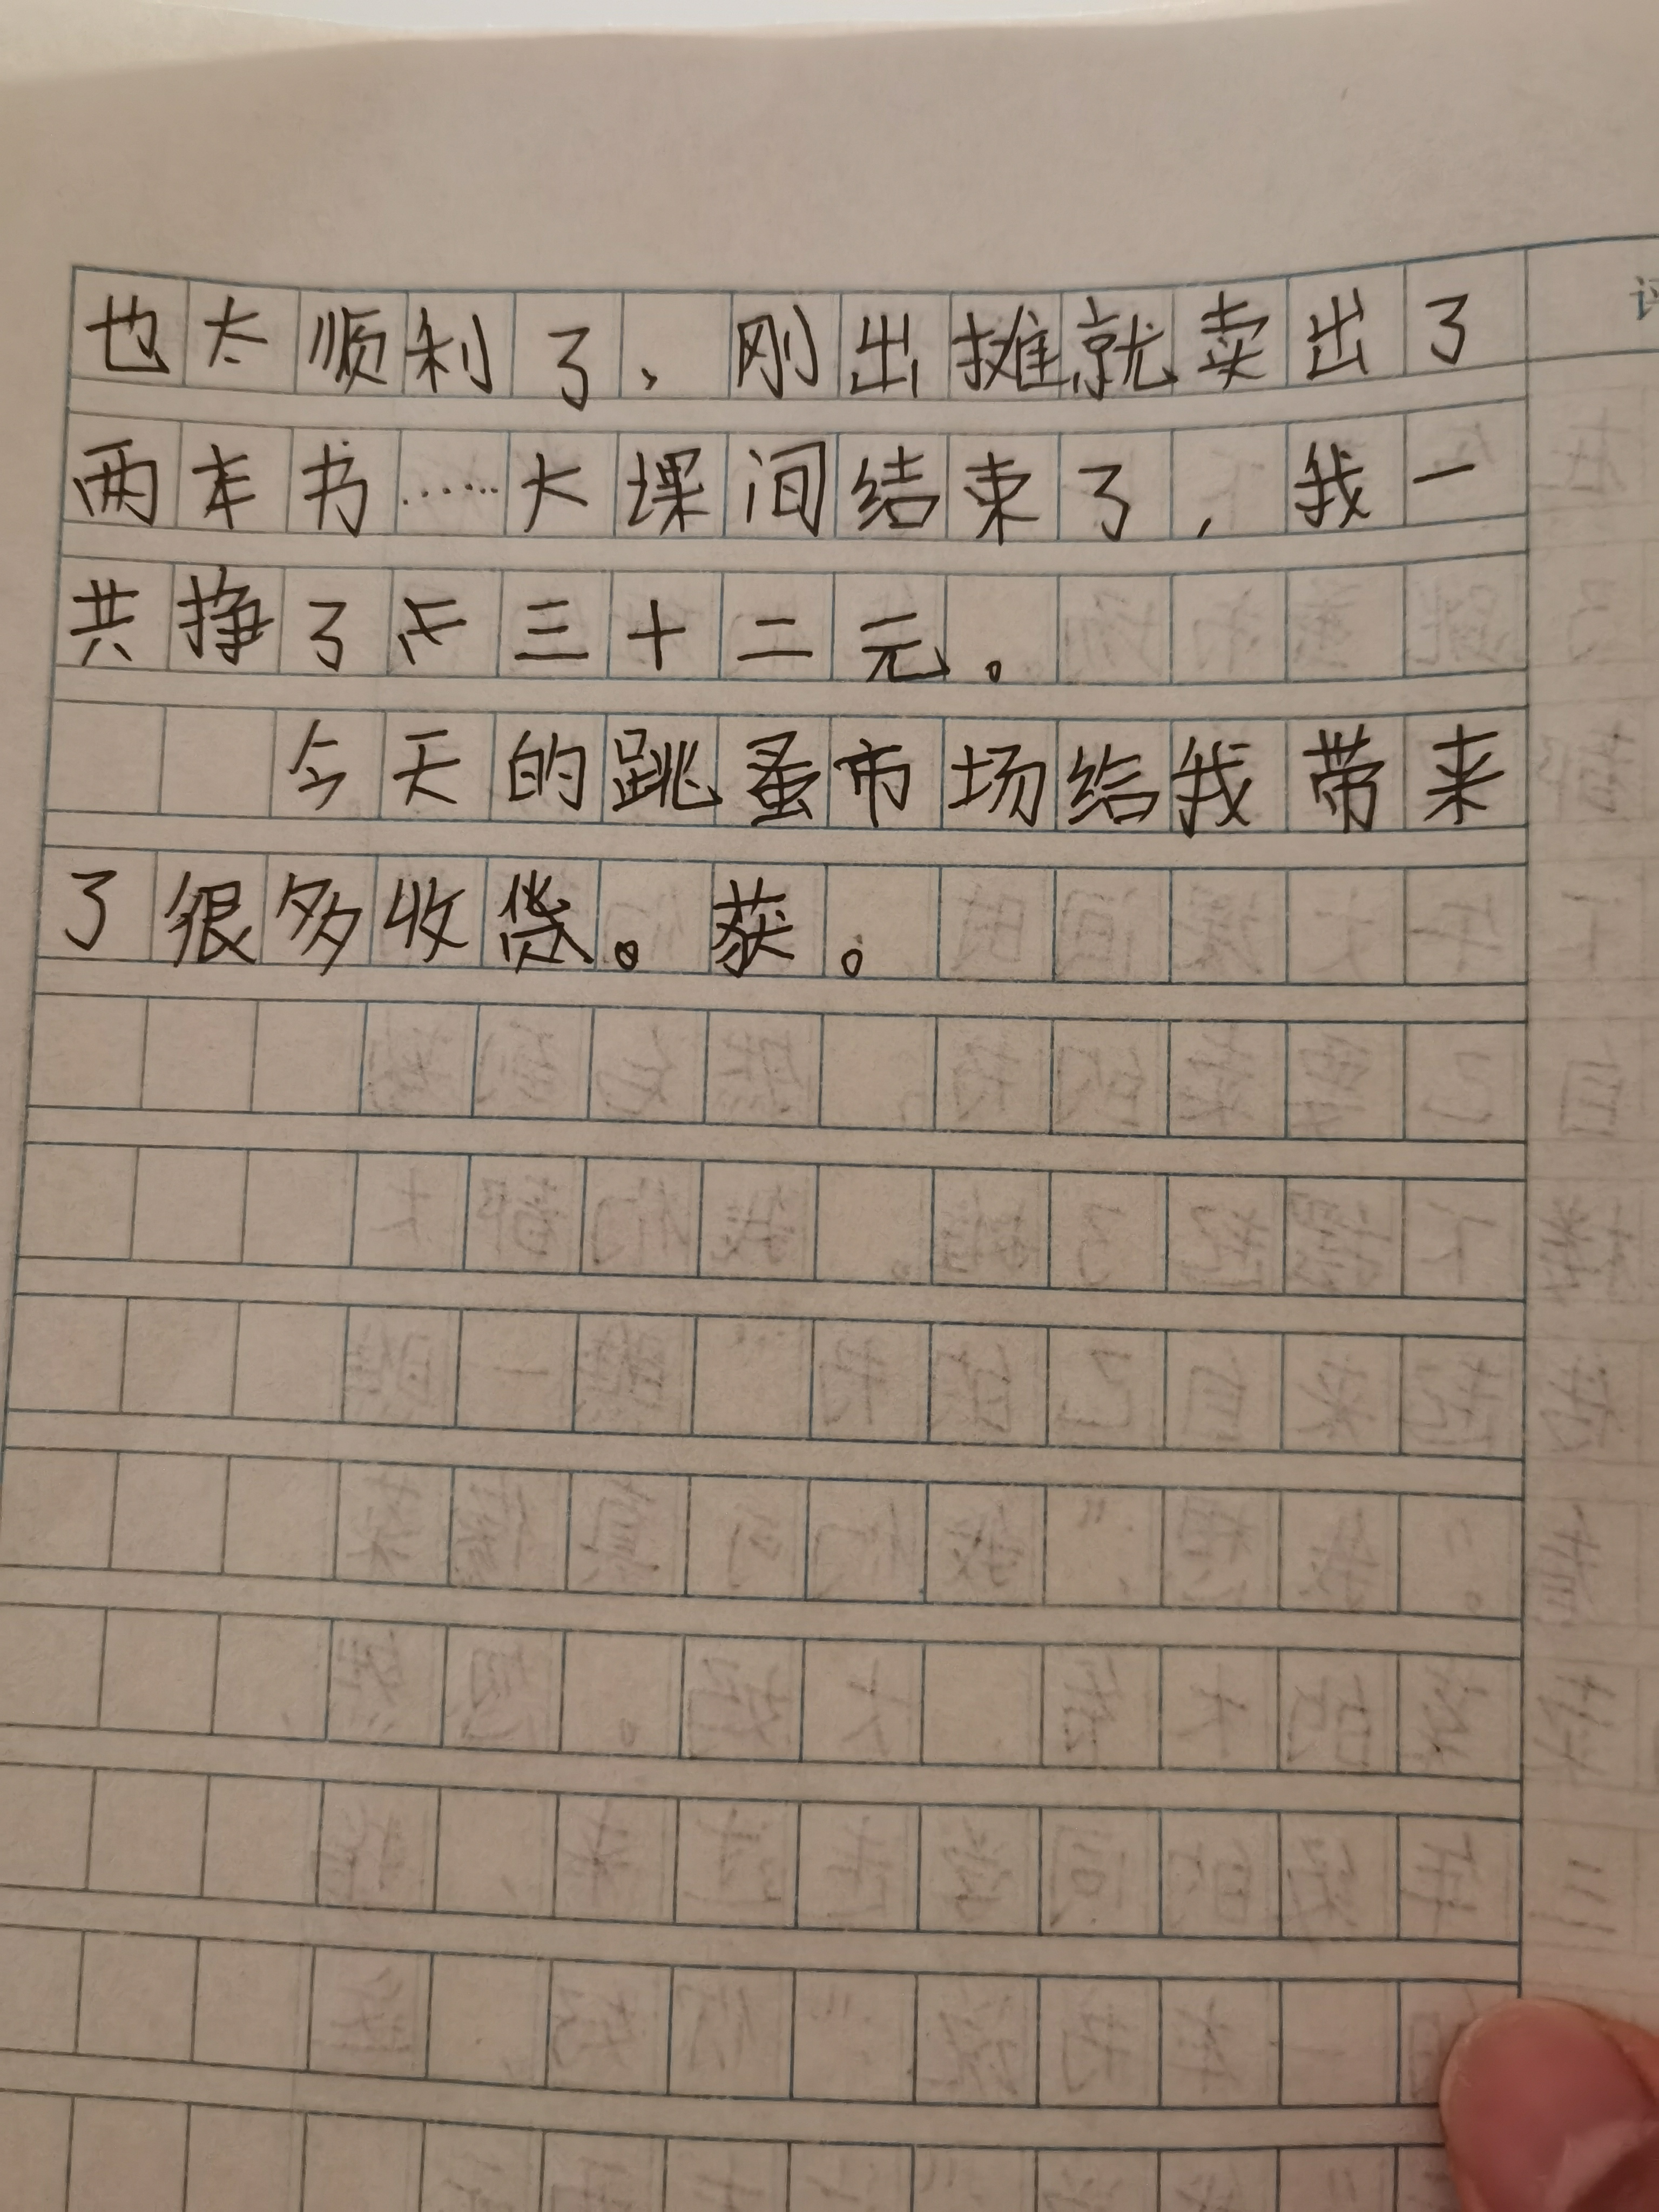 也太顺利了、刚出摊就卖出了
两本书……大课间结束了，我一
共挣了三十二元。
今天的跳蚤市场给我带来
了很多收货。获。